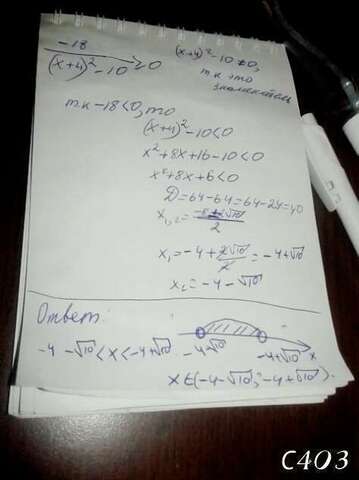 -18 / ((x+4)² - 10) ≥ 0
(x+4)² - 10 ≠ 0,
т.к это
знаменатель
т.к -18 < 0, то
(x+4)² - 10 < 0
x² + 8x + 16 - 10 < 0
x² + 8x + 6 < 0
D = 64 - 64 = 64 - 24 = 40
x₁,₂ = (-8 ± 2√10) / 2
x₁ = -4 + 2√10/2 = -4 + √10
x₂ = -4 - √10
Ответ:
-4 - √10 < x < -4 + √10
-4 - √10
-4 + √10
x
x ∈ (-4 - √10; -4 + √10).
C403